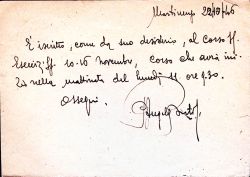 Martinengo 22/10/46
È iscritto, come da suo desiderio, al corso
10-16 novembre, corso che avrà ini-
zio nella mattinata del lunedì 11 ore 9.30.
Ossequi.